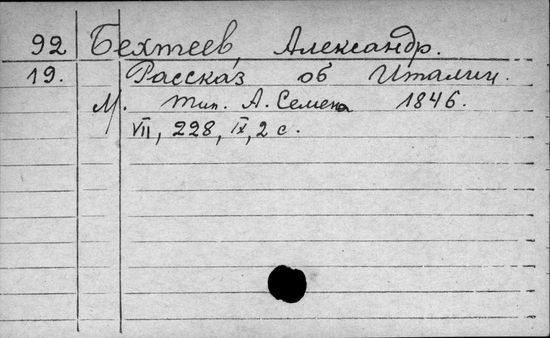 92 Бехтеев, Александр.
19. Рассказ об Италии.
М. тип. А. Семена 1846.
VII, 228, IX, 2 с.